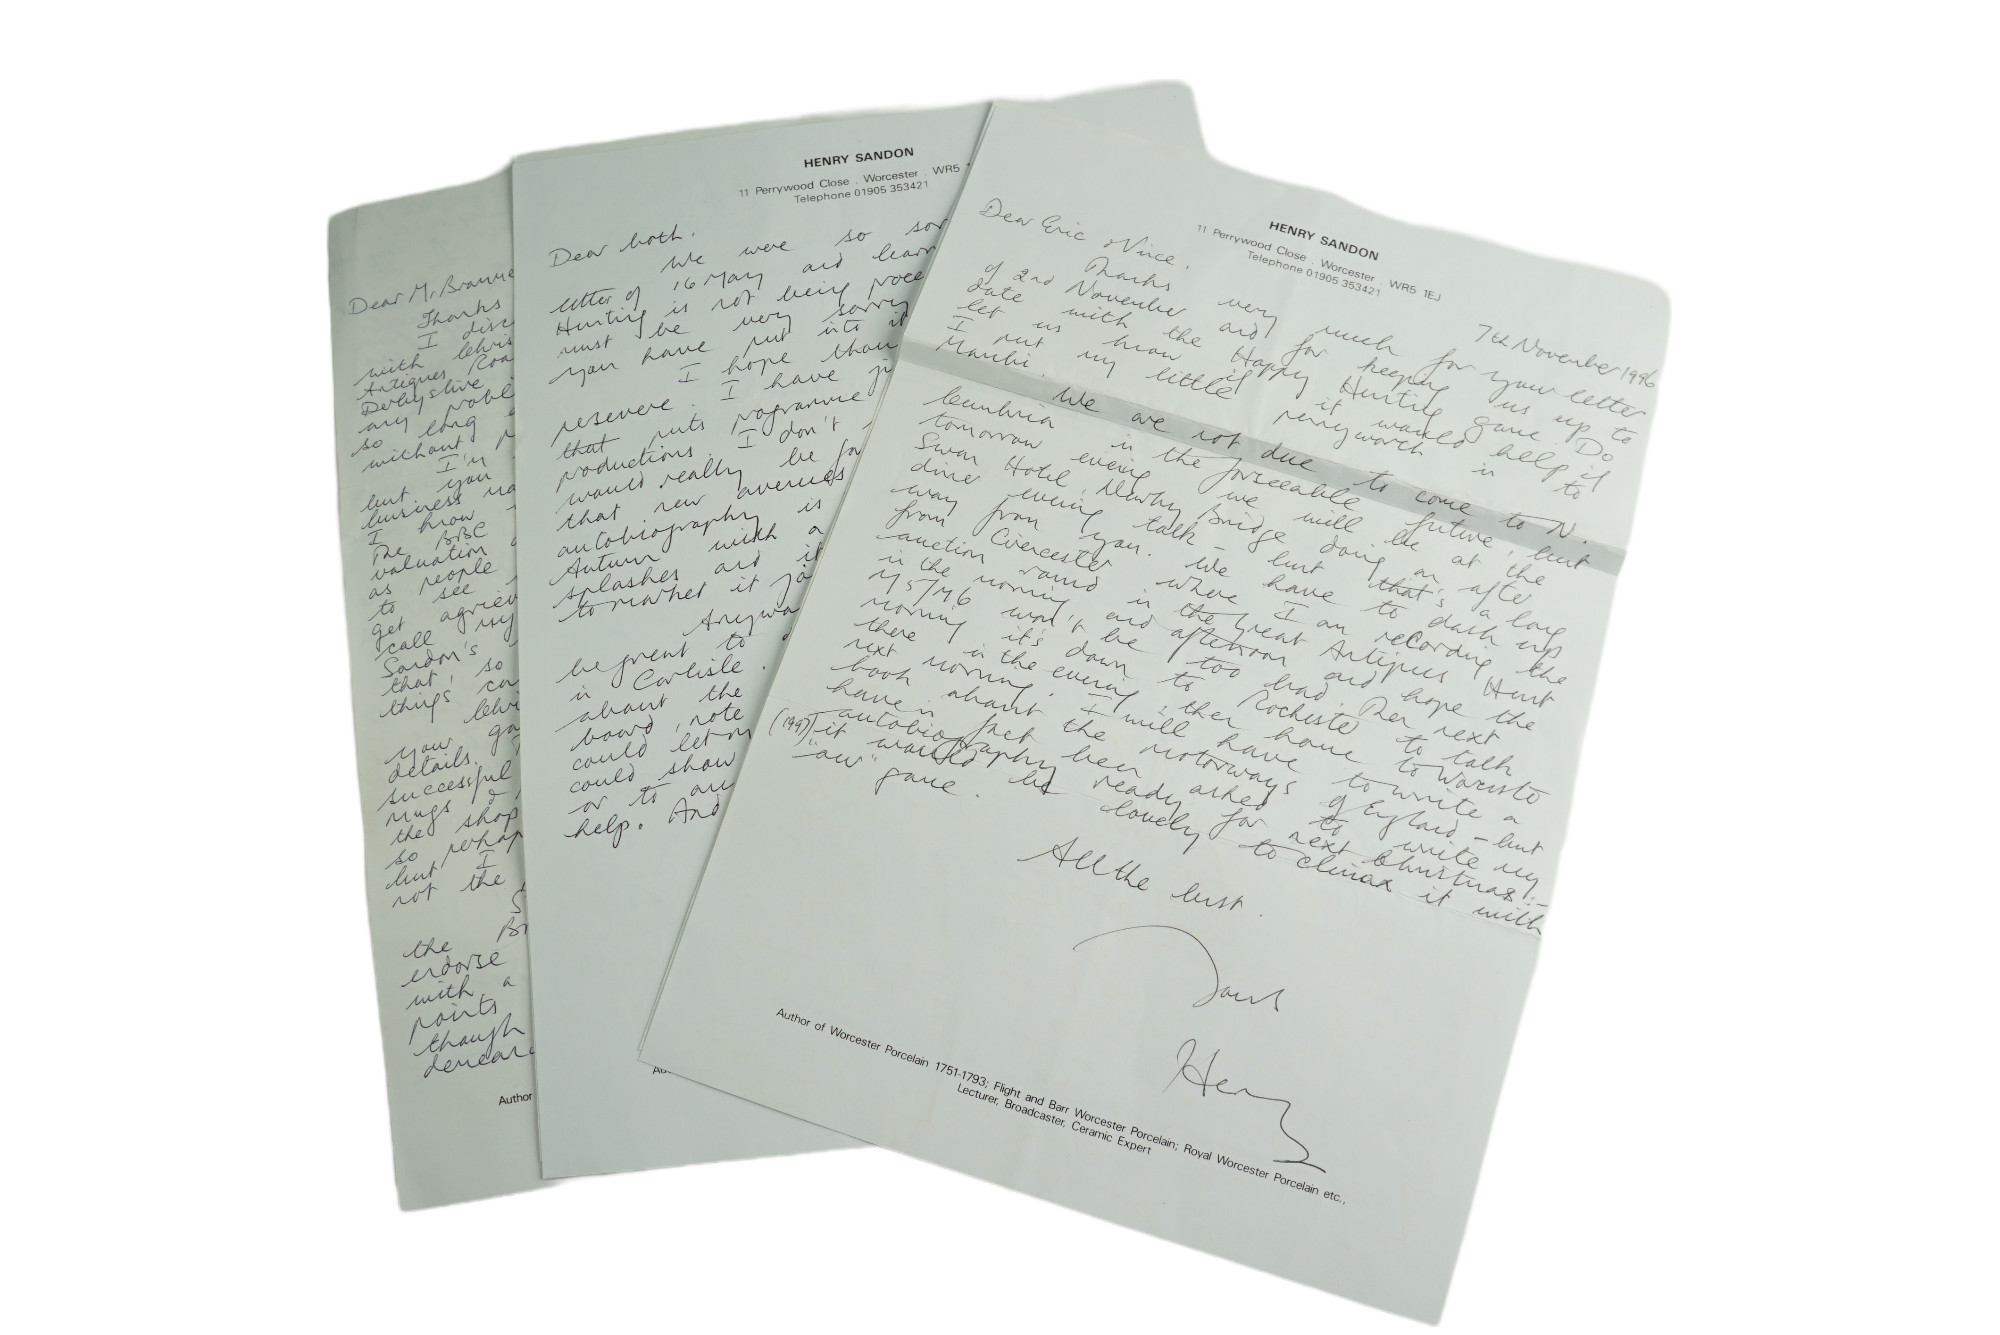 Dear Mr. Branne
Thanks
I disc
with Lewis
Antiques Roa
Derbyshire
any proble
so long
without p
I'm
but you
business na
I know
The BBC
valuation
as people
to see
get agriev
call my
Sandon's
that, so
things ca
your ga
details.
successful
mugs &
the shop
so perhap
but I
not the
the Br
endorse
with a
points
though
Author
HENRY SANDON
11 Perrywood Close . Worcester . WR5
Telephone 01905 353421
Dear both.
We were so sor
letter of 16 May and learn
Hunting is not being proce
must be very sorry
you have put into it
I hope than
persevere. I have ju
that puts programme
productions. I don't
would really be for
that new avenues
autobiography is
Autumn with a
splashes and it
to market it jo
Anyway
be great to
in Carlisle.
about the
board, note
could let my
could show
or to any
help. And
HENRY SANDON
11 Perrywood Close . Worcester . WR5 1EJ
Telephone 01905 353421
7th November 1996
Dear Eric & Vince.
Thanks very much for your letter
of 2nd November and for keeping us up to
date with the Happy Hunting game. Do
let us know if it would help if
I put my little pennyworth in to
We are not due to come to N.
Cumbria in the forseeable future, but
tomorrow evening we will be at the
Swan Hotel, Newby Bridge doing an after
dinner evening talk - but that's a long
way from you. We have to dash up
from Cirencester where I am recording the
auction round in the Great Antiques Hunt
in the morning and afternoon and hope the
M5/M6 won't be too bad. Then next
morning it's down to Rochester to talk
there in the evening, then home to Worcester
next morning. I will have to write a
book about the motorways of England - but
have in fact been asked to write my
autobiography ready for next Christmas -
(1997) it would be lovely to climax it with
"our" game.
All the best.
Yours
Henry
Author of Worcester Porcelain 1751-1793; Flight and Barr Worcester Porcelain; Royal Worcester Porcelain etc.,
Lecturer, Broadcaster, Ceramic Expert